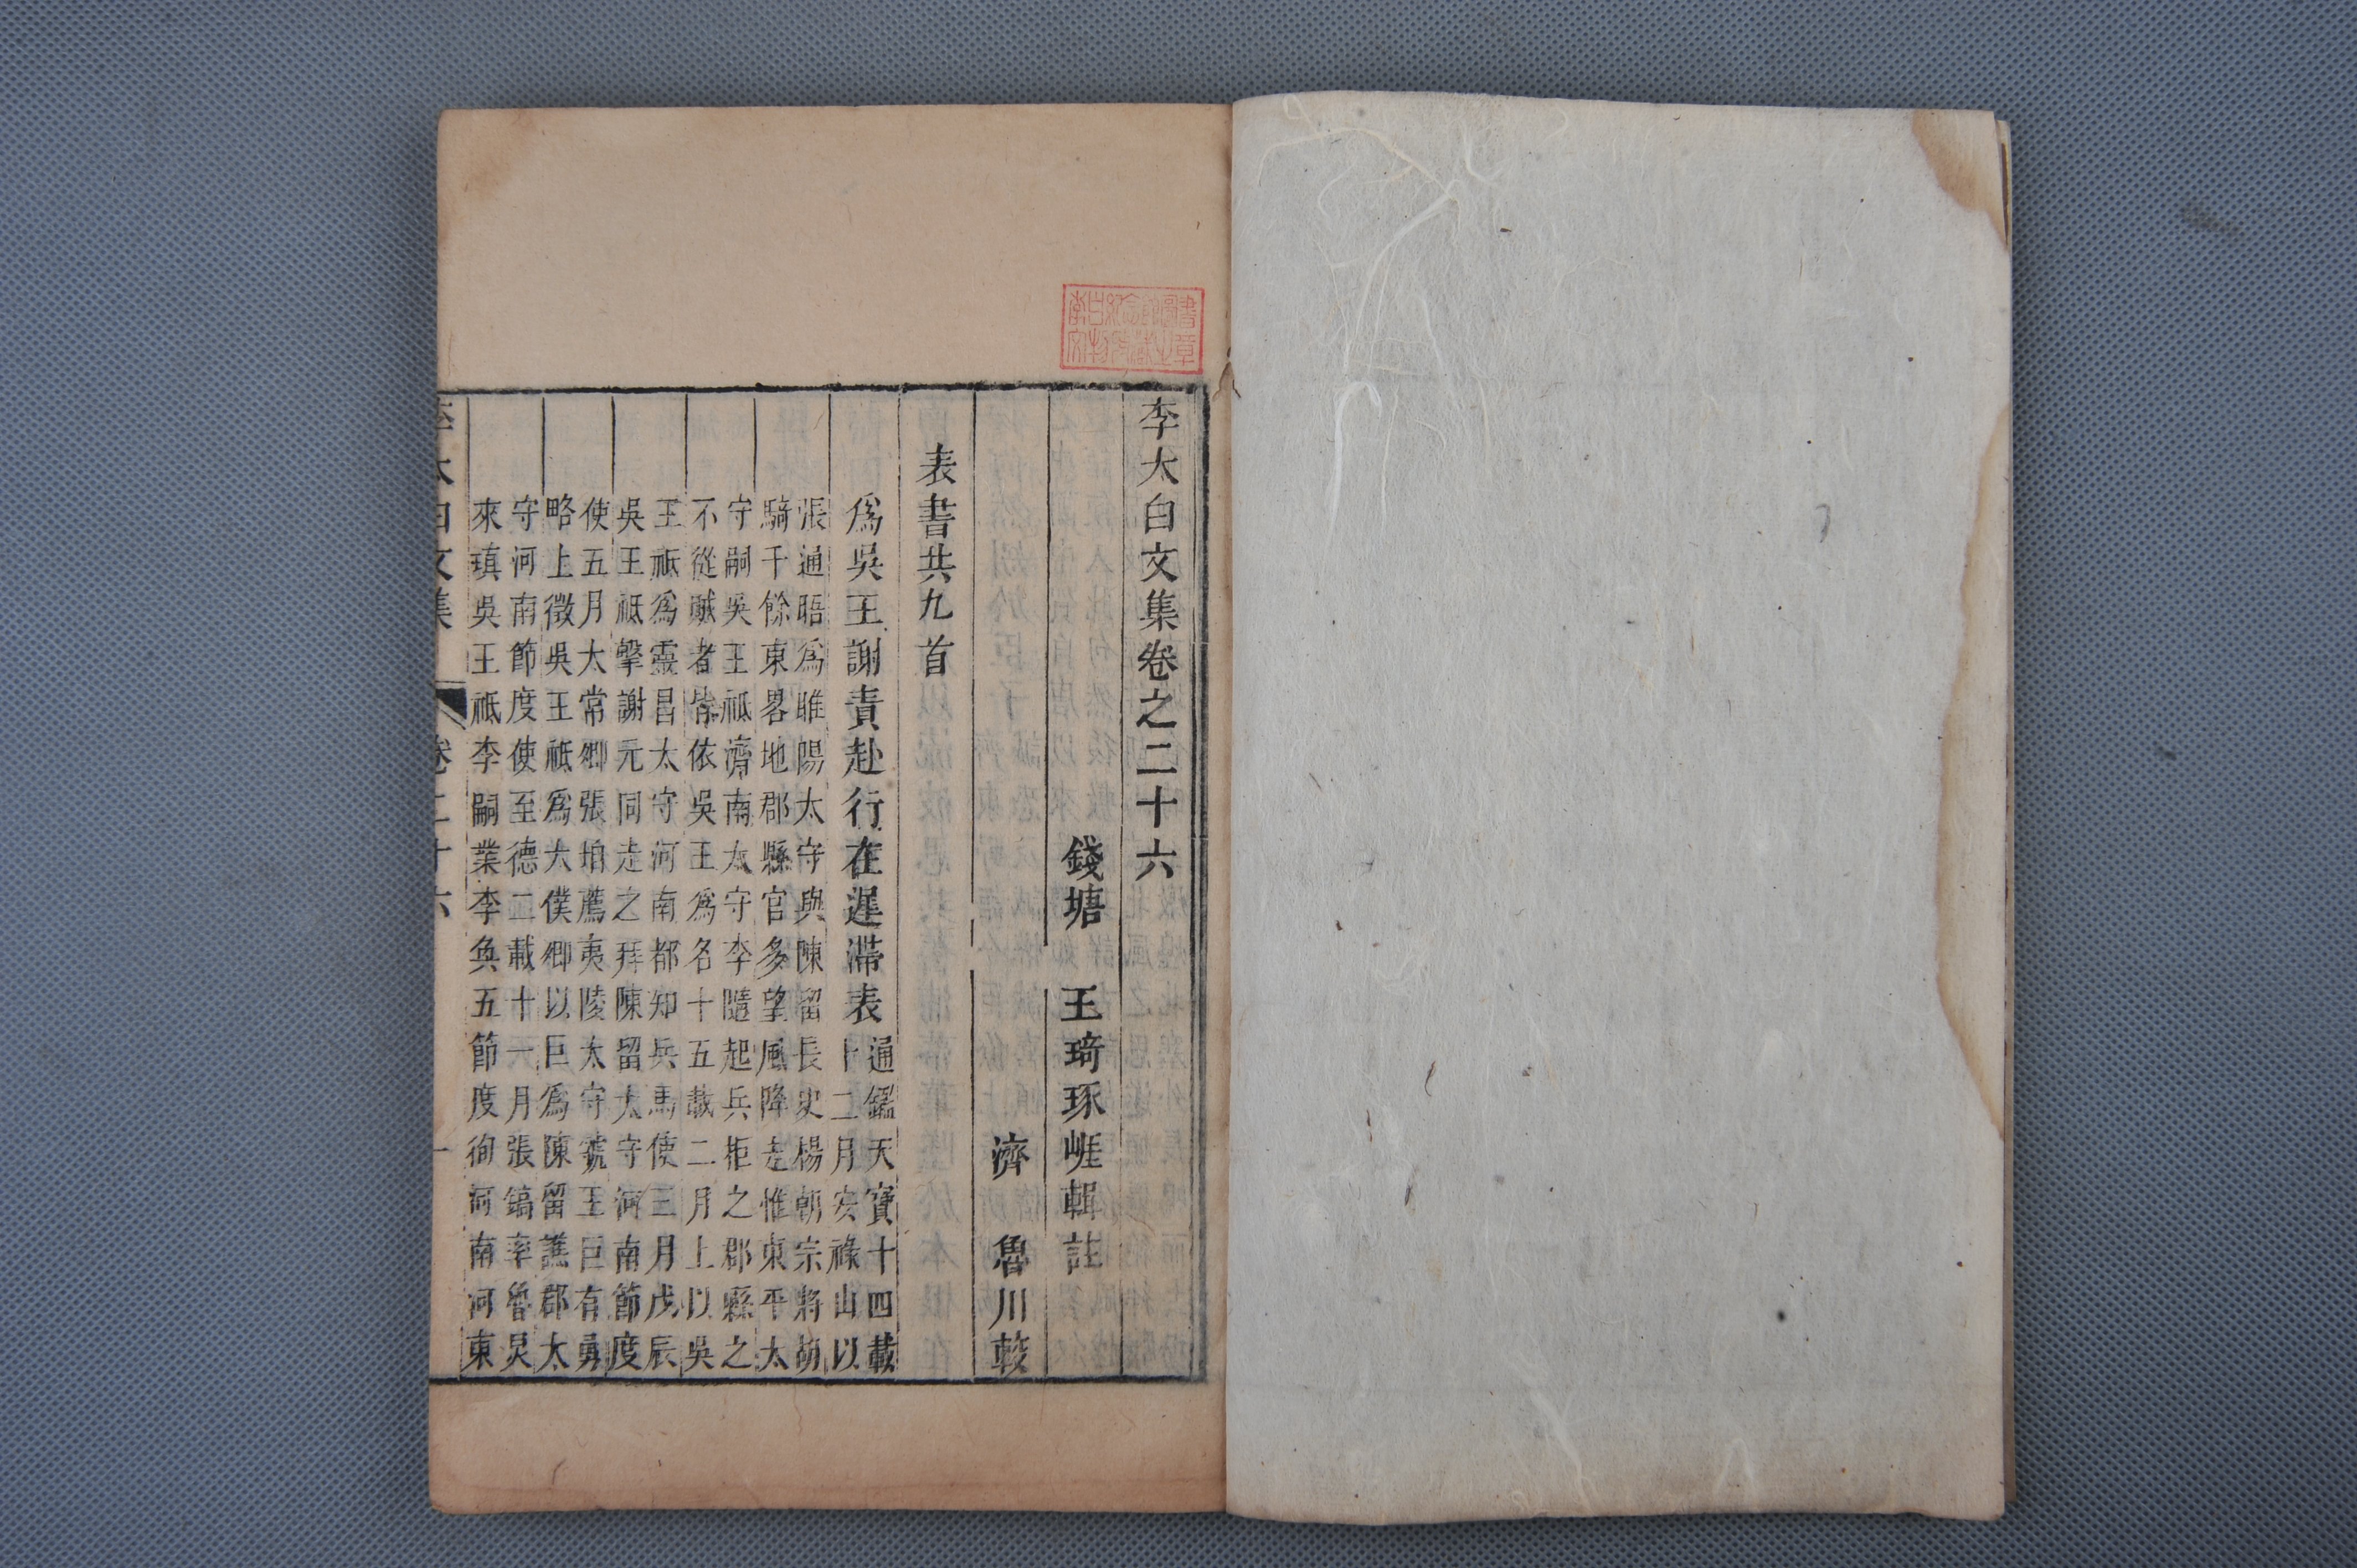 李太白文集卷之二十六
錢塘　王琦琢崕輯註
濟　魯川較
表書共九首
爲吳王謝責赴行在遲滯表
通鑑天寶十四載
十二月安祿山以
張通晤爲睢陽太守與陳留長史楊朝宗將胡
騎千餘東畧地郡縣官多望風降走惟東平太
守嗣吳王祗濟南太守李隨起兵拒之郡縣之
不從賊者皆依吳王爲名十五載二月上以吳
王祗爲靈昌太守河南都知兵馬使三月戊辰
吳王祗擊謝元同走之拜陳留太守河南節度
使五月太常卿張垍薦夷陵太守虢王巨有勇
略上徵吳王祗爲太僕卿以巨爲陳留譙郡太
守河南節度使至德二載十一月張鎬率魯炅
來瑱吳王祗李嗣業李奐五節度徇河南河東
李太白文集　卷二十六　一